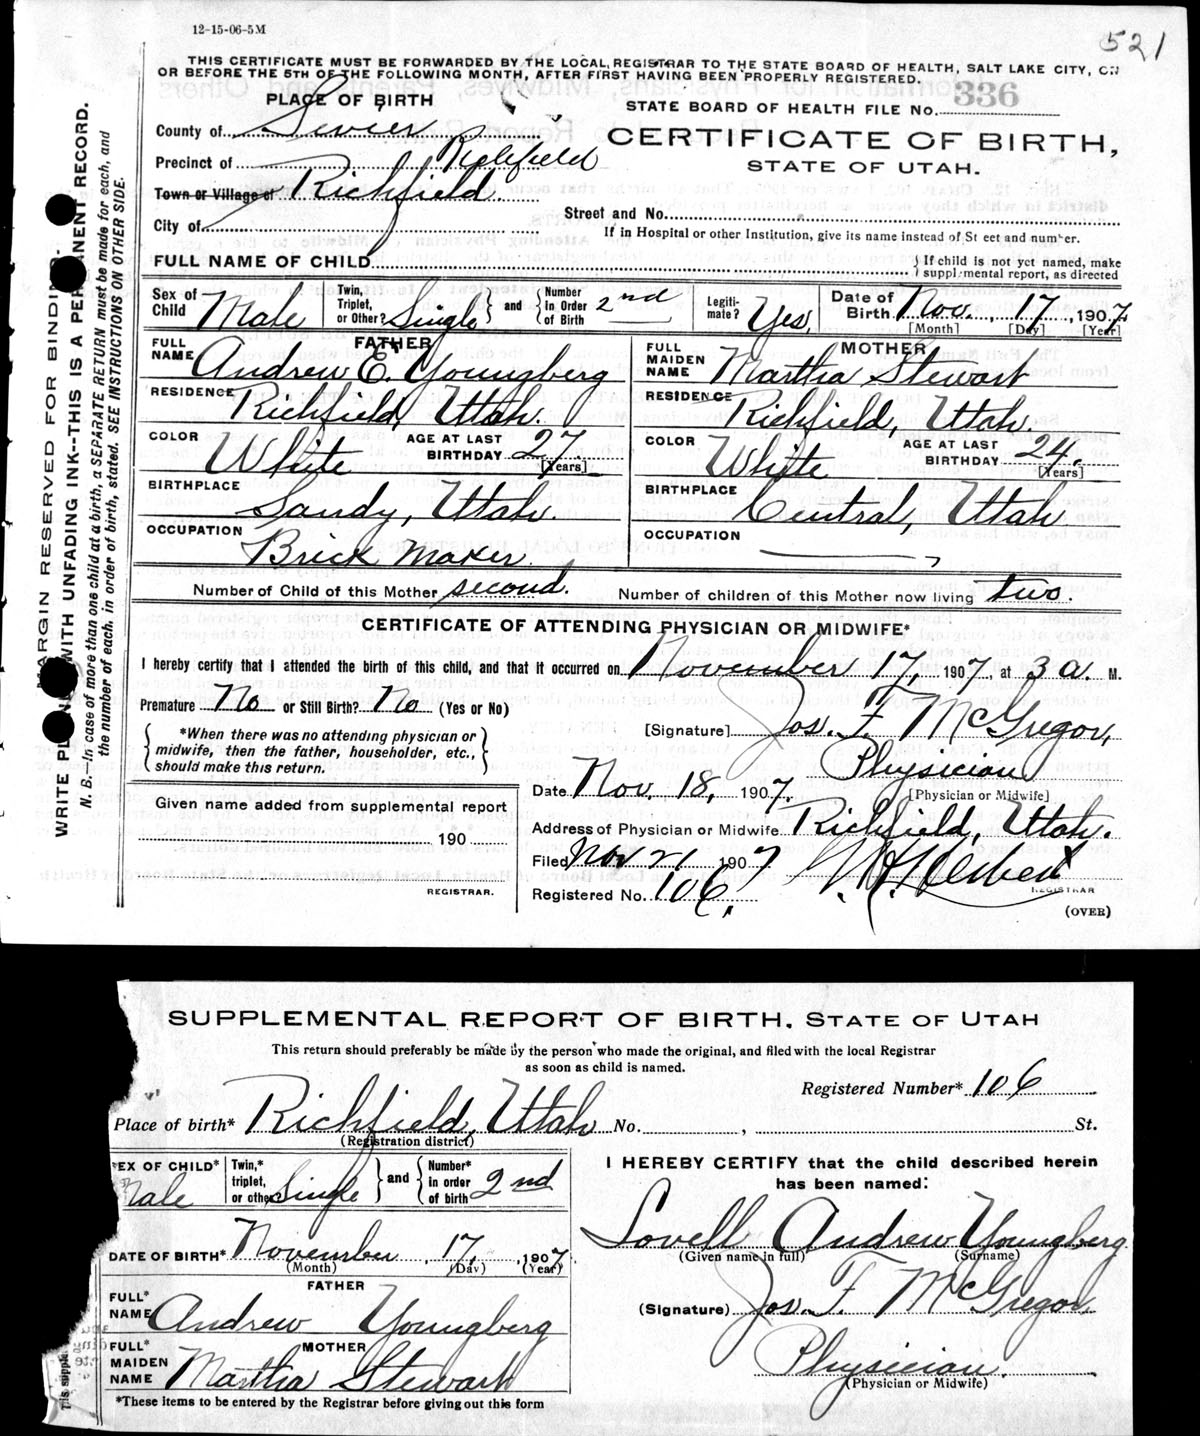 12-15-06-5M
521
THIS CERTIFICATE MUST BE FORWARDED BY THE LOCAL REGISTRAR TO THE STATE BOARD OF HEALTH, SALT LAKE CITY, ON
OR BEFORE THE 5TH OF THE FOLLOWING MONTH, AFTER FIRST HAVING BEEN PROPERLY REGISTERED.
PLACE OF BIRTH
STATE BOARD OF HEALTH FILE No. 336
County of Sevier
CERTIFICATE OF BIRTH,
Precinct of Richfield
STATE OF UTAH.
Town or Village of Richfield.
Street and No.
City of
If in Hospital or other Institution, give its name instead of St eet and number.
FULL NAME OF CHILD
{ If child is not yet named, make
supplemental report, as directed
Sex of Child Male
Twin, Triplet, or Other? Single
and
Number in Order of Birth 2nd
Legiti-mate? Yes
Date of Birth. Nov. 17, 1907
[Month] [Day] [Year]
FATHER
FULL NAME Andrew E. Youngberg
RESIDENCE Richfield, Utah.
COLOR White
AGE AT LAST BIRTHDAY 27 [Years]
BIRTHPLACE Sandy, Utah.
OCCUPATION Brick Maker
MOTHER
FULL MAIDEN NAME Martha Stewart
RESIDENCE Richfield, Utah.
COLOR White
AGE AT LAST BIRTHDAY 24. [Years]
BIRTHPLACE Central, Utah
OCCUPATION
Number of Child of this Mother second. Number of children of this Mother now living two.
CERTIFICATE OF ATTENDING PHYSICIAN OR MIDWIFE*
I hereby certify that I attended the birth of this child, and that it occurred on November 17, 1907, at 3 a. M.
Premature No or Still Birth? No (Yes or No)
[Signature] Jos. F. McGregor,
*When there was no attending physician or
midwife, then the father, householder, etc.,
should make this return.
Physician
[Physician or Midwife]
Date Nov. 18, 1907.
Given name added from supplemental report
190
REGISTRAR.
Address of Physician or Midwife Richfield, Utah.
Filed Nov 21 1907
REGISTRAR
Registered No. 106.
(OVER)
MARGIN RESERVED FOR BINDING.
WRITE PL WITH UNFADING INK--THIS IS A PERMANENT RECORD.
N. B.—In case of more than one child at birth, a SEPARATE RETURN must be made for each, and
the number of each, in order of birth, stated. SEE INSTRUCTIONS ON OTHER SIDE.
SUPPLEMENTAL REPORT OF BIRTH, STATE OF UTAH
This return should preferably be made by the person who made the original, and filed with the local Registrar
as soon as child is named.
Registered Number* 106
Place of birth* Richfield, Utah No. , St.
(Registration district)
EX OF CHILD* Male
Twin,* triplet, or other Single
and
Number* in order of birth 2nd
DATE OF BIRTH* November 17, 1907
(Month) (Day) (Year)
FATHER
FULL* NAME Andrew Youngberg
MOTHER
FULL* MAIDEN NAME Martha Stewart
*These items to be entered by the Registrar before giving out this form
I HEREBY CERTIFY that the child described herein
has been named:
Lovell Andrew Youngberg
(Given name in full) (Surname)
(Signature) Jos. F. McGregor,
Physician.
(Physician or Midwife)